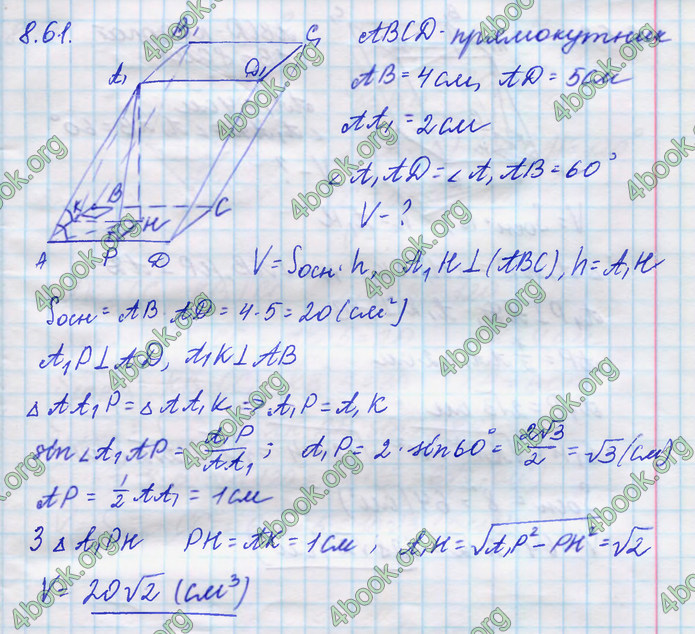 8.61.
B₁ C₁
A₁ D₁
K B H C
A P D
ABCD - прямокутник
AB = 4 см, AD = 5 см
AA₁ = 2 см
∠A₁AD = ∠A₁AB = 60°
V - ?
V = Sосн · h, A₁H ⊥ (ABC), h = A₁H
Sосн = AB · AD = 4 · 5 = 20 (см²)
A₁P ⊥ AD, A₁K ⊥ AB
△AA₁P = △AA₁K => A₁P = A₁K
sin ∠A₁AP = A₁P/AA₁; A₁P = 2 · sin 60° = 2√3/2 = √3 (см)
AP = 1/2 AA₁ = 1 см
З △A₁PH PH = AK = 1 см, A₁H = √(A₁P² - PH²) = √2
V = 20√2 (см³)
4book.org